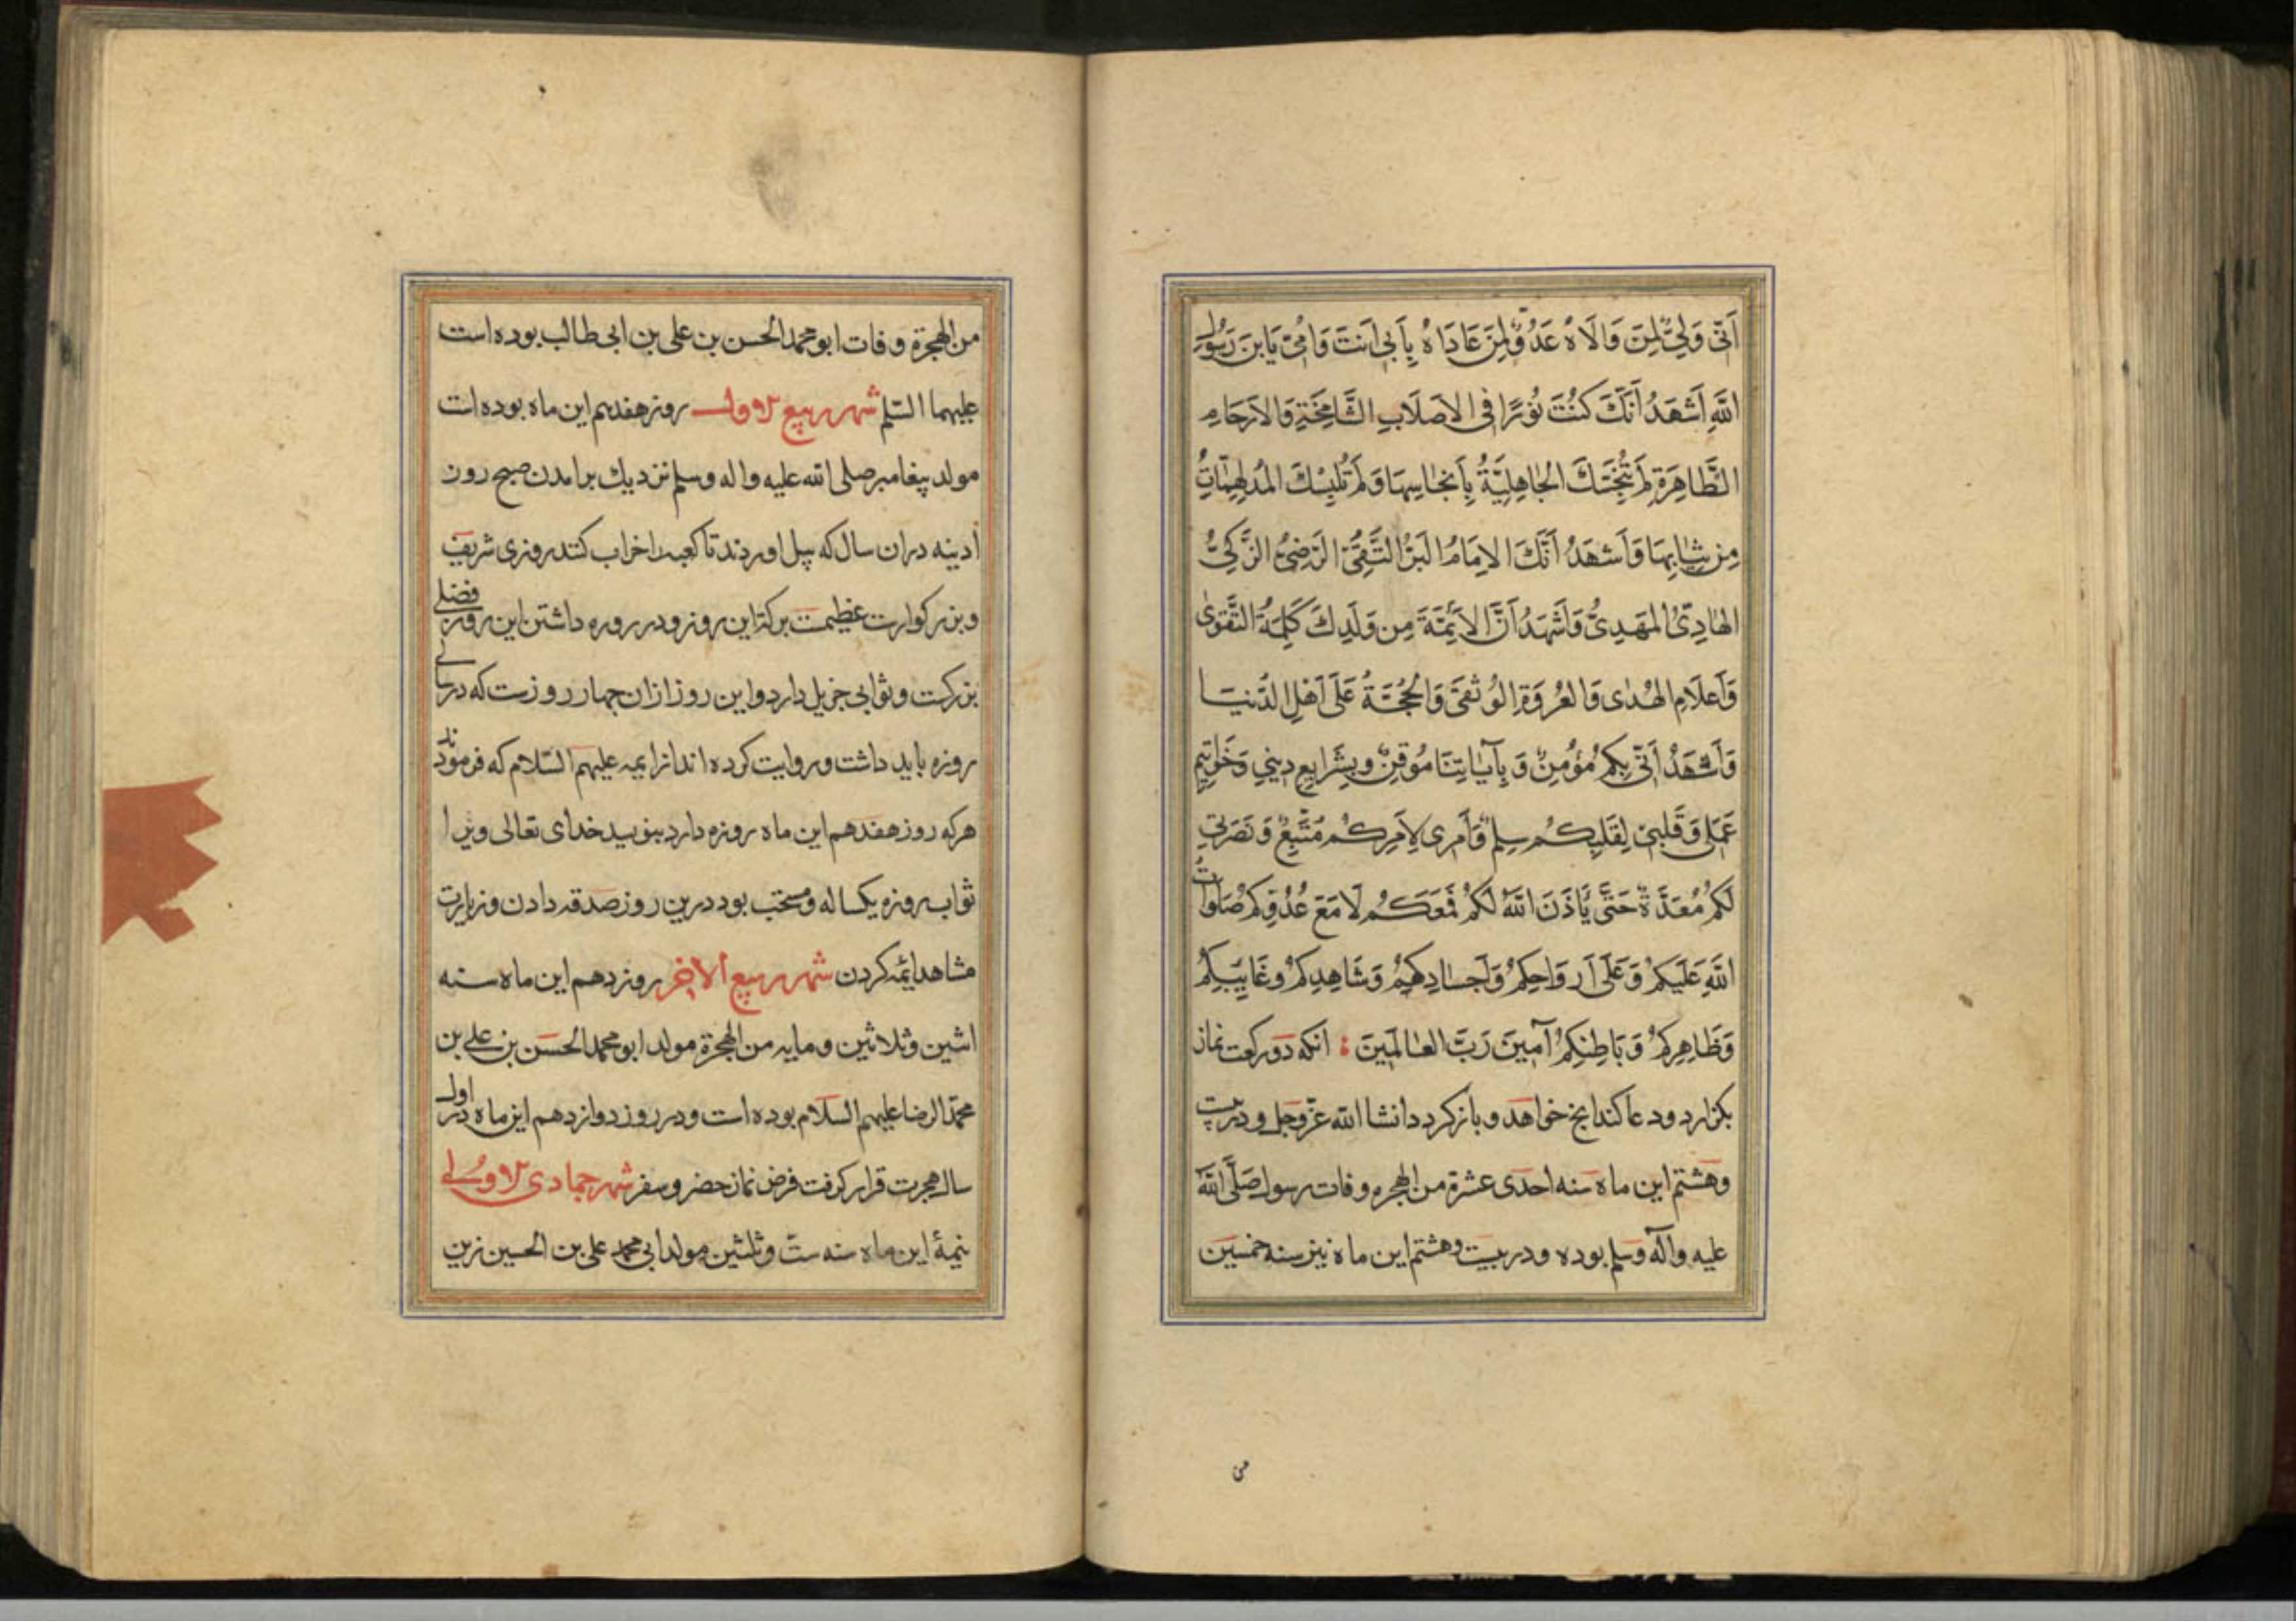 اَنّی وَلِیٌّ لِمَن وَالَاهُ عَدُوٌّ لِمَن عَادَاهُ بِاَبِی اَنتَ وَاُمّی یَابنَ رَسُولِ
اللّٰهِ اَشهَدُ اَنَّکَ کُنتَ نُورًا فِی الاَصلَابِ الشَّامِخَةِ وَالاَرحَامِ
الطَّاهِرَةِ لَم تُنَجِّسکَ الجَاهِلِیَّةُ بِاَنجَاسِهَا وَلَم تُلبِسکَ المُدلَهِمَّاتُ
مِن ثِیَابِهَا وَاَشهَدُ اَنَّکَ الاِمَامُ البَرُّ التَّقِیُّ الرَّضِیُّ الزَّکِیُّ
الهَادِیُّ المَهدِیُّ وَاَشهَدُ اَنَّ الاَئِمَّةَ مِن وَلَدِکَ کَلِمَةُ التَّقوٰی
وَاَعلَامِ الهُدٰی وَالعُروَةِ الوُثقَی وَالحُجَّةُ عَلَی اَهلِ الدُّنیَا
وَاَشهَدُ اَنّی بِکُم مُؤمِنٌ وَبِآیَاتِنَا مُوقِنٌ وبِشَرَایِعِ دِینِی وَخَوَاتِیمِ
عَمَلِی وَقَلبِی لِقَلبِکُم سِلمٌ وَاَمرِی لِاَمرِکُم مُتَّبِعٌ وَنَصرَتِی
لَکُم مُعَدَّةٌ حَتَّی یَاذَنَ اللّٰهُ لَکُم فَمَعَکُم لَا مَعَ عَدُوِّکُم صَلَوَاتُ
اللّٰهِ عَلَیکُم وَعَلَی اَروَاحِکُم وَاَجسَادِکُم وَشَاهِدِکُم وَغَایِبِکُم
وَظَاهِرِکُم وَبَاطِنِکُم آمِینَ رَبَّ العَالَمِینَ انکه دو رکعت نماز
بکزارد ودعا کند انج خواهد وبازکردد انشا الله عزّ وجل ودر بیست
وهشتم این ماه سنه احدی عشرة من الهجره وفات رسول صَلَّی اللّٰه
علیه وآله وسلم بوده ودر بیست وهشتم این ماه نیز سنه خمسین
من
من الهجرة وفات ابو محمد الحسن بن علی بن ابی طالب بوده است
علیهما السّلم شهر ربیع الاول روز هفدهم این ماه بوده است
مولد پیغامبر صلی الله علیه واله وسلم نزدیک برامدن صبح روز
آدینه دران سال که پیل اوردند تا کعبه را خراب کنند روزی شریف
وبزرکوارست عظیمست برکت این روز ودر روزه داشتن این روز فضلی
بزرکست وثوابی جزیل دارد واین روز ازان چهار روزست که در سالی
روزه باید داشت وروایت کرده اند از ایمه علیهم السّلام که فرمودند
هرکه روز هفدهم این ماه روزه دارد بنویسد خدای تعالی ویرا
ثواب روزه یکساله ومستحب بود درین روز صدقه دادن وزیارت
مشاهد ائمه کردن شهر ربیع الاخر روز دهم این ماه سنه
اثنین وثلاثین ومایه من الهجرة مولد ابو محمد الحسن بن علی بن
محمّد الرضا علیهم السلام بوده است ودر روز دوازدهم این ماه در اول
سال هجرت قرار کرفت فرض نماز حضر وسفر شهر جمادی الاولی
نیمهٔ این ماه سنه ستّ وثلثین مولد ابی محمد علی بن الحسین زین